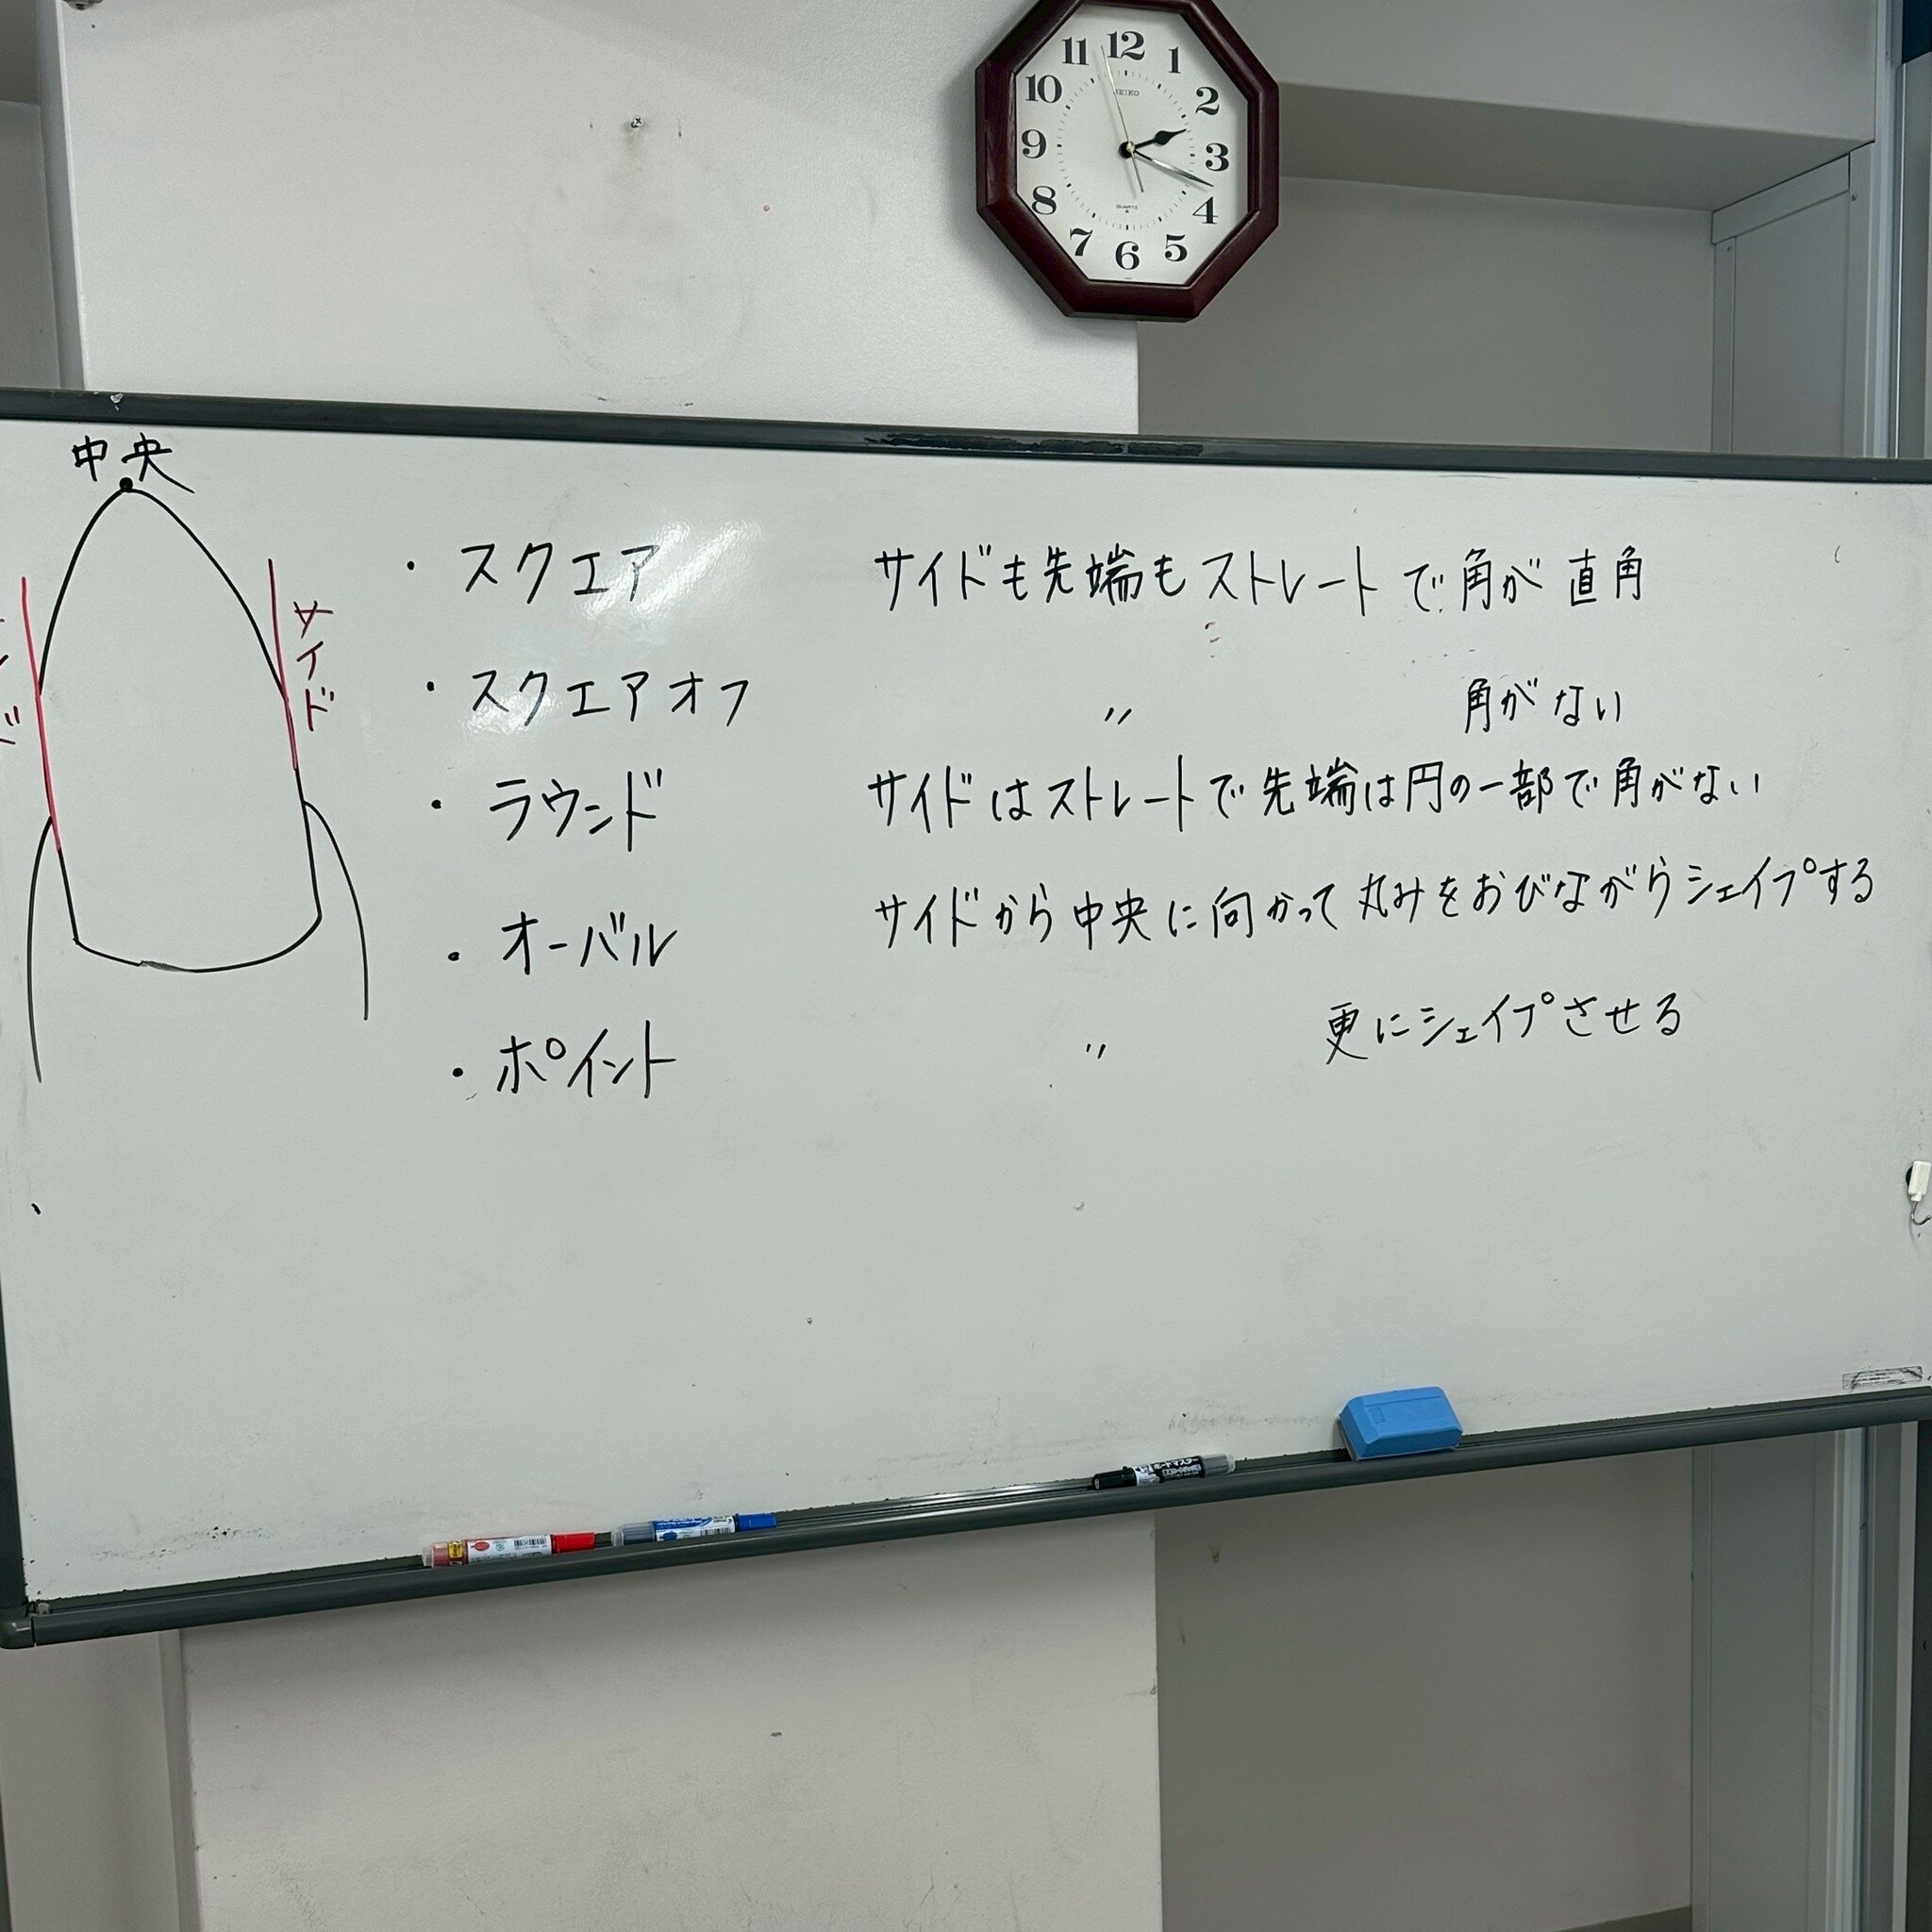 11 12 1
10 2
9 3
8 4
7 6 5
SEIKO
QUARTZ
中央
サイド
・スクエア サイドも先端もストレートで角が直角
・スクエアオフ 〃 角がない
・ラウンド サイドはストレートで先端は円の一部で角がない
・オーバル サイドから中央に向かって丸みをおびながらシェイプする
・ポイント 〃 更にシェイプさせる